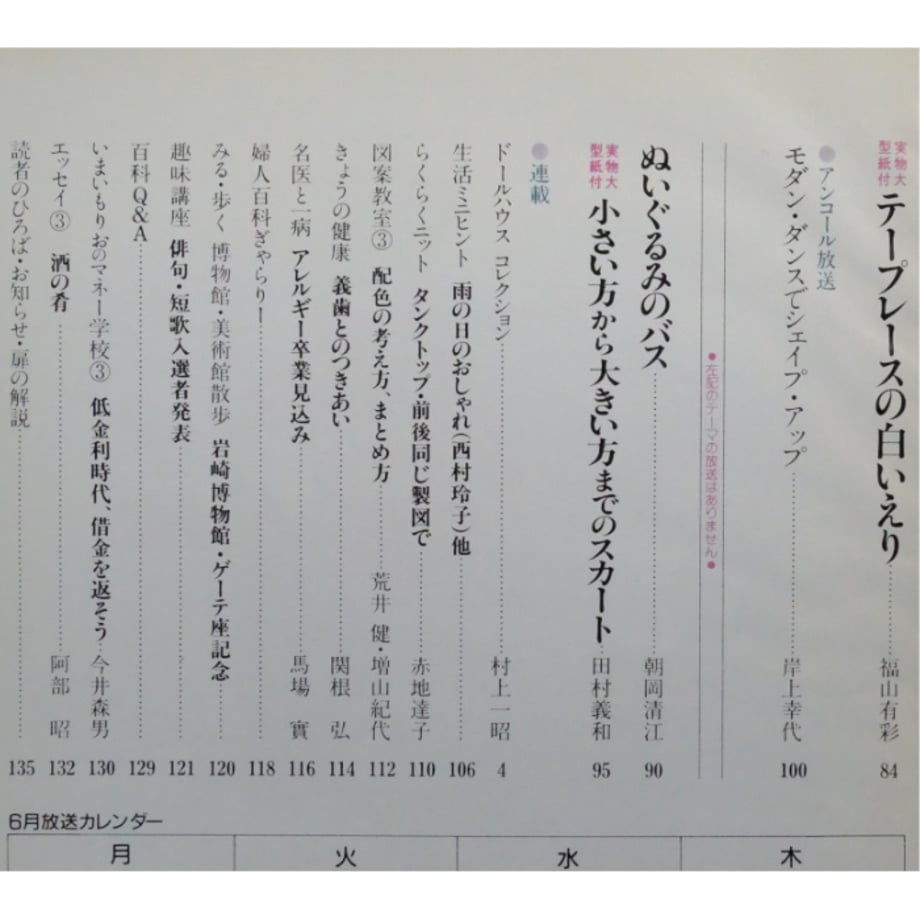 実物大型紙付 テープレースの白いえり 福山有彩 84
●アンコール放送
モダン・ダンスでシェイプ・アップ 岸上幸代 100
●左記のテーマの放送はありません●
ぬいぐるみのバス 朝岡清江 90
実物大型紙付 小さい方から大きい方までのスカート 田村義和 95
●連載
ドールハウス コレクション 村上一昭 4
生活ミニヒント 雨の日のおしゃれ(西村玲子)他 106
らくらくニット タンクトップ・前後同じ製図で 赤地達子 110
図案教室③ 配色の考え方、まとめ方 荒井 健・増山紀代 112
きょうの健康 義歯とのつきあい 関根 弘 114
名医と一病 アレルギー卒業見込み 馬場 實 116
婦人百科ぎゃらりー 118
みる・歩く 博物館・美術館散歩 岩崎博物館・ゲーテ座記念 120
趣味講座 俳句・短歌入選者発表 121
百科Q&A 129
いまいもりおのマネー学校③ 低金利時代、借金を返そう 今井森男 130
エッセイ③ 酒の肴 阿部 昭 132
読者のひろば・お知らせ・扉の解説 135
6月放送カレンダー
月 火 水 木